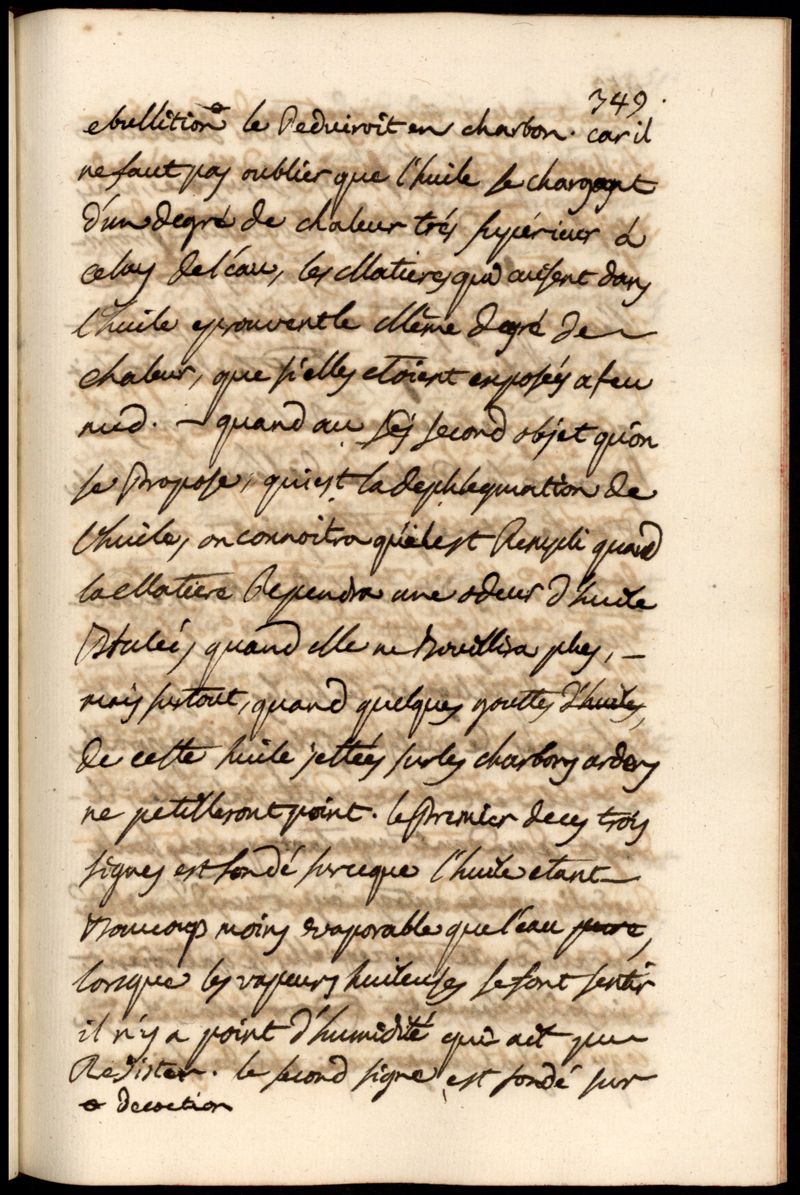 349.
ebullition ⊖ le Reduiroit en charbon. car il
ne faut pas oublier que l'huile se chargeant
d'un degré de chaleur trés supérieur à
celuy de l'éau, les Matieres qui cuisent dans
l'huile eprouvent le Même degré de
chaleur, que si elles etoient exposés a feu
nud. — quand au second objet qu'on
se Propose, qui est la dephlegmation de
l'huile, on connoitra qu'il est Rempli quand
la Matiere Rependra une odeur d'huile
Brulée, quand elle ne Bouillira plus, —
mais surtout, quand quelques gouttes d'huiles,
de cette huile jettées sur les charbons ardens
ne petilleront point. le Premier de ces trois
signes est fondé sur ce que l'huile etant —
Baucoup moins evaporable que l'eau pure,
lorsque les vapeurs huileuses se font sentir
il n'y a point d'humidité qui ait pu
Résister. le second signe est fondé sur
⊖ decoction